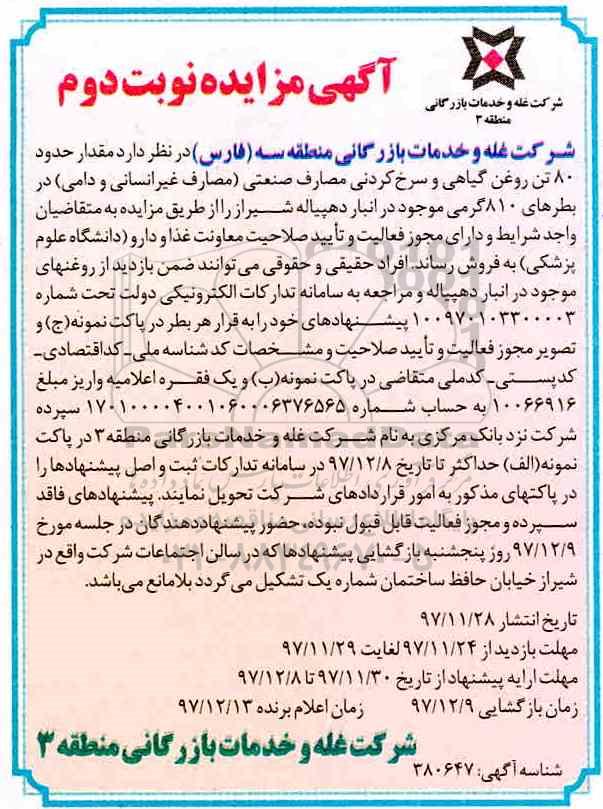 شرکت غله و خدمات بازرگانی
منطقه ۳
آگهی مزایده نوبت دوم
شرکت غله و خدمات بازرگانی منطقه سه (فارس) در نظر دارد مقدار حدود
۸۰ تن روغن گیاهی و سرخ‌کردنی مصارف صنعتی (مصارف غیرانسانی و دامی) در
بطرهای ۸۱۰گرمی موجود در انبار دهپیاله شیراز را از طریق مزایده به متقاضیان
واجد شرایط و دارای مجوز فعالیت و تأیید صلاحیت معاونت غذا و دارو (دانشگاه علوم
پزشکی) به فروش رساند. افراد حقیقی و حقوقی می‌توانند ضمن بازدید از روغنهای
موجود در انبار دهپیاله و مراجعه به سامانه تدارکات الکترونیکی دولت تحت شماره
پیشنهادهای خود را به قرار هر بطر در پاکت نمونه(ج) و
تصویر مجوز فعالیت و تأیید صلاحیت و مشخصات کد شناسه ملی_کداقتصادی_
کدپستی_کدملی متقاضی در پاکت نمونه(ب) و یک فقره اعلامیه واریز مبلغ
۱۰۰۶۶۹۱۶ به حساب شماره ۱۷۰۱۰۰۰۰۴۰۰۱۰۶۰۰۰۶۳۷۶۵۶۵ سپرده
شرکت نزد بانک مرکزی به نام شرکت غله و خدمات بازرگانی منطقه۳ در پاکت
نمونه(الف) حداکثر تا تاریخ ۹۷/۱۲/۸ در سامانه تدارکات ثبت و اصل پیشنهادها را
در پاکتهای مذکور به امور قراردادهای شرکت تحویل نمایند. پیشنهادهای فاقد
سپرده و مجوز فعالیت قابل قبول نبوده، حضور پیشنهاددهندگان در جلسه مورخ
۹۷/۱۲/۹ روز پنجشنبه بازگشایی پیشنهادها که در سالن اجتماعات شرکت واقع در
شیراز خیابان حافظ ساختمان شماره یک تشکیل می‌گردد بلامانع می‌باشد.
تاریخ انتشار ۹۷/۱۱/۲۸
مهلت بازدید از ۹۷/۱۱/۲۴ لغایت ۹۷/۱۱/۲۹
مهلت ارایه پیشنهاد از تاریخ ۹۷/۱۱/۳۰ تا ۹۷/۱۲/۸
زمان بازگشایی ۹۷/۱۲/۹ زمان اعلام برنده ۹۷/۱۲/۱۳
شرکت غله و خدمات بازرگانی منطقه ۳
شناسه آگهی: ۳۸۰۶۴۷